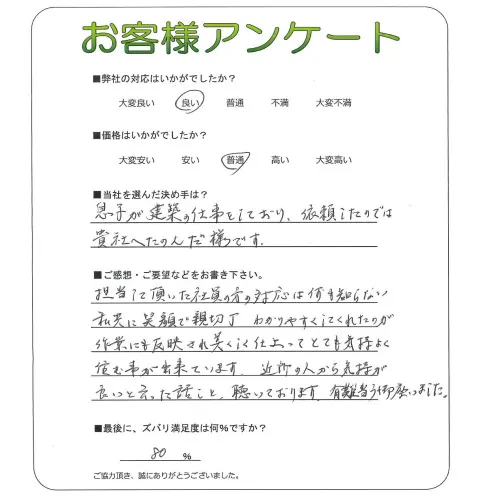 お客様アンケート
■弊社の対応はいかがでしたか？
大変良い 良い 普通 不満 大変不満
■価格はいかがでしたか？
大変安い 安い 普通 高い 大変高い
■当社を選んだ決め手は？
息子が建築の仕事をしており、依頼したのでは
貴社へたのんだ様です.
■ご感想・ご要望などをお書き下さい。
担当して頂いた社員の方の対応は何も知らない
私共に笑顔で親切丁 わかりやすくしてくれたのが
作業にも反映され美しく仕上ってとても気持よく
住む事が出来ています. 近所の人から気持が
良いと言った話こと、聴いております. 有難う御座いました。
■最後に、ズバリ満足度は何％ですか？
80 ％
ご協力頂き、誠にありがとうございました。